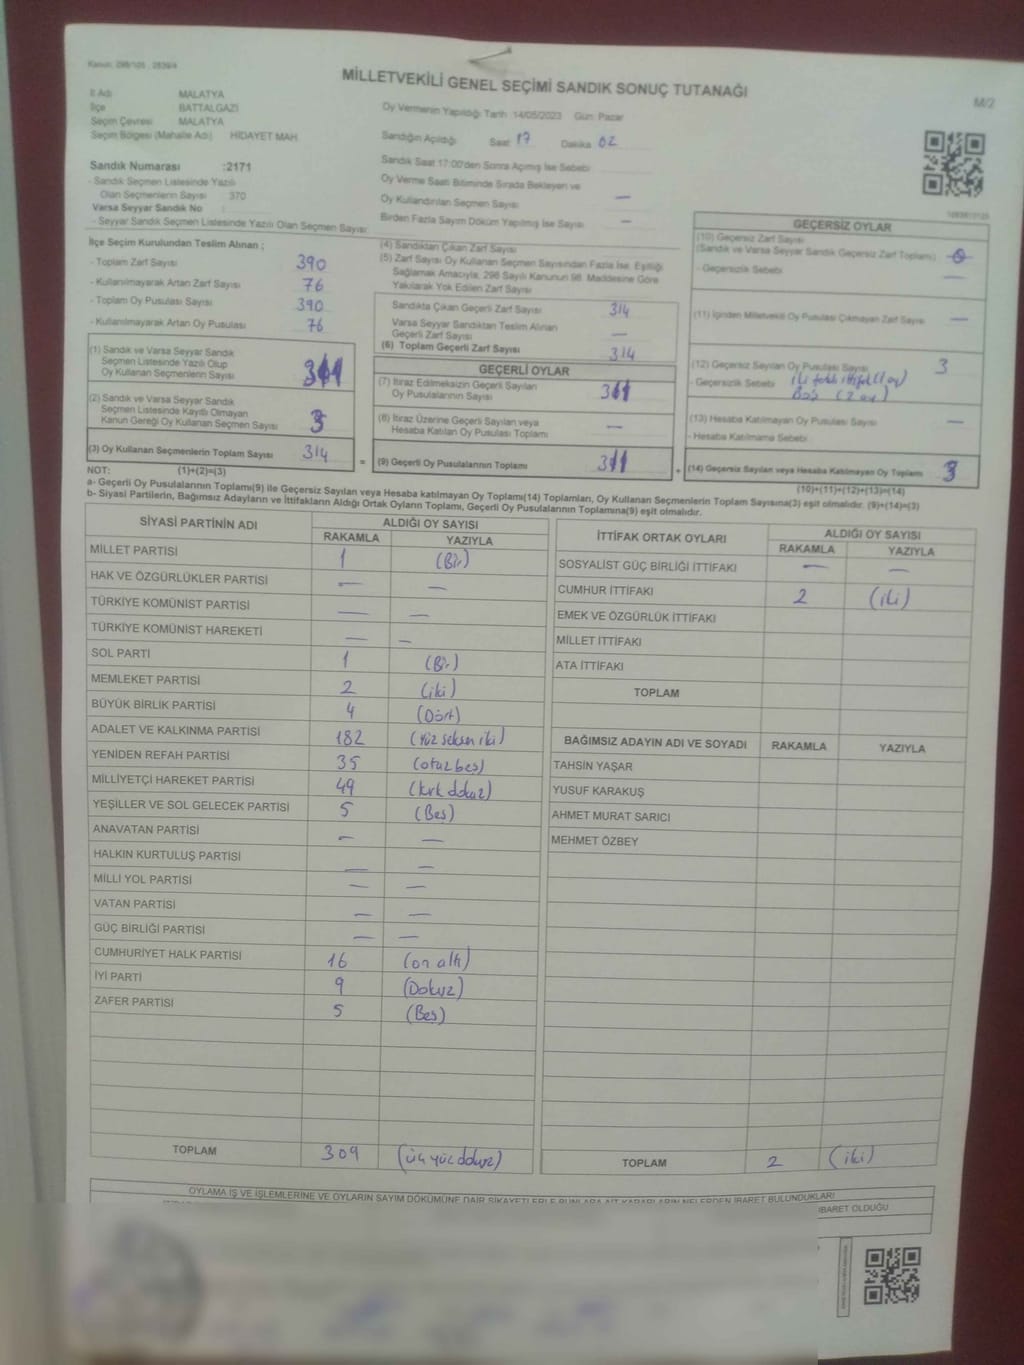 Kanun: 298/105 , 2839/4
MİLLETVEKİLİ GENEL SEÇİMİ SANDIK SONUÇ TUTANAĞI
M/2
İl Adı MALATYA
İlçe BATTALGAZİ
Seçim Çevresi MALATYA
Seçim Bölgesi (Mahalle Adı) HİDAYET MAH
Sandık Numarası :2171
- Sandık Seçmen Listesinde Yazılı
Olan Seçmenlerin Sayısı 370
Varsa Seyyar Sandık No :
- Seyyar Sandık Seçmen Listesinde Yazılı Olan Seçmen Sayısı:
Oy Vermenin Yapıldığı Tarih 14/05/2023 Gün: Pazar
Sandığın Açıldığı Saat 17 Dakika 02
Sandık Saat 17:00'den Sonra Açımış İse Sebebi
Oy Verme Saati Bitiminde Sırada Bekleyen ve
Oy Kullandırılan Seçmen Sayısı —
Birden Fazla Sayım Döküm Yapılmış İse Sayısı —
İlçe Seçim Kurulundan Teslim Alınan ;
- Toplam Zarf Sayısı 390
- Kullanılmayarak Artan Zarf Sayısı 76
- Toplam Oy Pusulası Sayısı 390
- Kullanılmayarak Artan Oy Pusulası 76
(1) Sandık ve Varsa Seyyar Sandık
Seçmen Listesinde Yazılı Olup
Oy Kullanan Seçmenlerin Sayısı 311
(2) Sandık ve Varsa Seyyar Sandık
Seçmen Listesinde Kayıtlı Olmayan
Kanun Gereği Oy Kullanan Seçmen Sayısı 3
(3) Oy Kullanan Seçmenlerin Toplam Sayısı 314
(4) Sandıktan Çıkan Zarf Sayısı
(5) Zarf Sayısı Oy Kullanan Seçmen Sayısından Fazla İse, Eşitliği
Sağlamak Amacıyla, 298 Sayılı Kanunun 98. Maddesine Göre
Yakılarak Yok Edilen Zarf Sayısı
Sandıkta Çıkan Geçerli Zarf Sayısı 314
Varsa Seyyar Sandıktan Teslim Alınan
Geçerli Zarf Sayısı —
(6) Toplam Geçerli Zarf Sayısı 314
GEÇERLİ OYLAR
(7) İtiraz Edilmeksizin Geçerli Sayılan
Oy Pusulalarının Sayısı 311
(8) İtiraz Üzerine Geçerli Sayılan veya
Hesaba Katılan Oy Pusulası Toplamı —
= (9) Geçerli Oy Pusulalarının Toplamı 311 +
GEÇERSİZ OYLAR
(10) Geçersiz Zarf Sayısı
(Sandık ve Varsa Seyyar Sandık Geçersiz Zarf Toplamı)
- Geçersizlik Sebebi —
(11) İçinden Milletvekili Oy Pusulası Çıkmayan Zarf Sayısı —
(12) Geçersiz Sayılan Oy Pusulası Sayısı 3
- Geçersizlik Sebebi iki farklı ittifak (1 oy)
Boş (2 oy)
(13) Hesaba Katılmayan Oy Pusulası Sayısı —
- Hesaba Katılmama Sebebi
(14) Geçersiz Sayılan veya Hesaba Katılmayan Oy Toplamı 3
NOT: (1)+(2)=(3)
(10)+(11)+(12)+(13)=(14)
a- Geçerli Oy Pusulalarının Toplamı(9) ile Geçersiz Sayılan veya Hesaba katılmayan Oy Toplamı(14) Toplamları, Oy Kullanan Seçmenlerin Toplam Sayısına(3) eşit olmalıdır. (9)+(14)=(3)
b- Siyasi Partilerin, Bağımsız Adayların ve İttifakların Aldığı Ortak Oyların Toplamı, Geçerli Oy Pusulalarının Toplamına(9) eşit olmalıdır.
SİYASİ PARTİNİN ADI ALDIĞI OY SAYISI
RAKAMLA YAZIYLA
MİLLET PARTİSİ 1 (Bir)
HAK VE ÖZGÜRLÜKLER PARTİSİ — —
TÜRKİYE KOMÜNİST PARTİSİ — —
TÜRKİYE KOMÜNİST HAREKETİ — —
SOL PARTİ 1 (Bir)
MEMLEKET PARTİSİ 2 (iki)
BÜYÜK BİRLİK PARTİSİ 4 (Dört)
ADALET VE KALKINMA PARTİSİ 182 (Yüz seksen iki)
YENİDEN REFAH PARTİSİ 35 (otuz beş)
MİLLİYETÇİ HAREKET PARTİSİ 49 (kırk dokuz)
YEŞİLLER VE SOL GELECEK PARTİSİ 5 (Beş)
ANAVATAN PARTİSİ — —
HALKIN KURTULUŞ PARTİSİ — —
MİLLİ YOL PARTİSİ — —
VATAN PARTİSİ — —
GÜÇ BİRLİĞİ PARTİSİ — —
CUMHURİYET HALK PARTİSİ 16 (on altı)
İYİ PARTİ 9 (Dokuz)
ZAFER PARTİSİ 5 (Beş)
TOPLAM 309 (üç yüz dokuz)
İTTİFAK ORTAK OYLARI ALDIĞI OY SAYISI
RAKAMLA YAZIYLA
SOSYALİST GÜÇ BİRLİĞİ İTTİFAKI — —
CUMHUR İTTİFAKI 2 (iki)
EMEK VE ÖZGÜRLÜK İTTİFAKI
MİLLET İTTİFAKI
ATA İTTİFAKI
TOPLAM
BAĞIMSIZ ADAYIN ADI VE SOYADI RAKAMLA YAZIYLA
TAHSİN YAŞAR
YUSUF KARAKUŞ
AHMET MURAT SARICI
MEHMET ÖZBEY
TOPLAM 2 (iki)
OYLAMA İŞ VE İŞLEMLERİNE VE OYLARIN SAYIM DÖKÜMÜNE DAİR ŞİKAYETLERLE BUNLARA AİT KARARLARIN NELERDEN İBARET BULUNDUKLARI
İBARET OLDUĞU